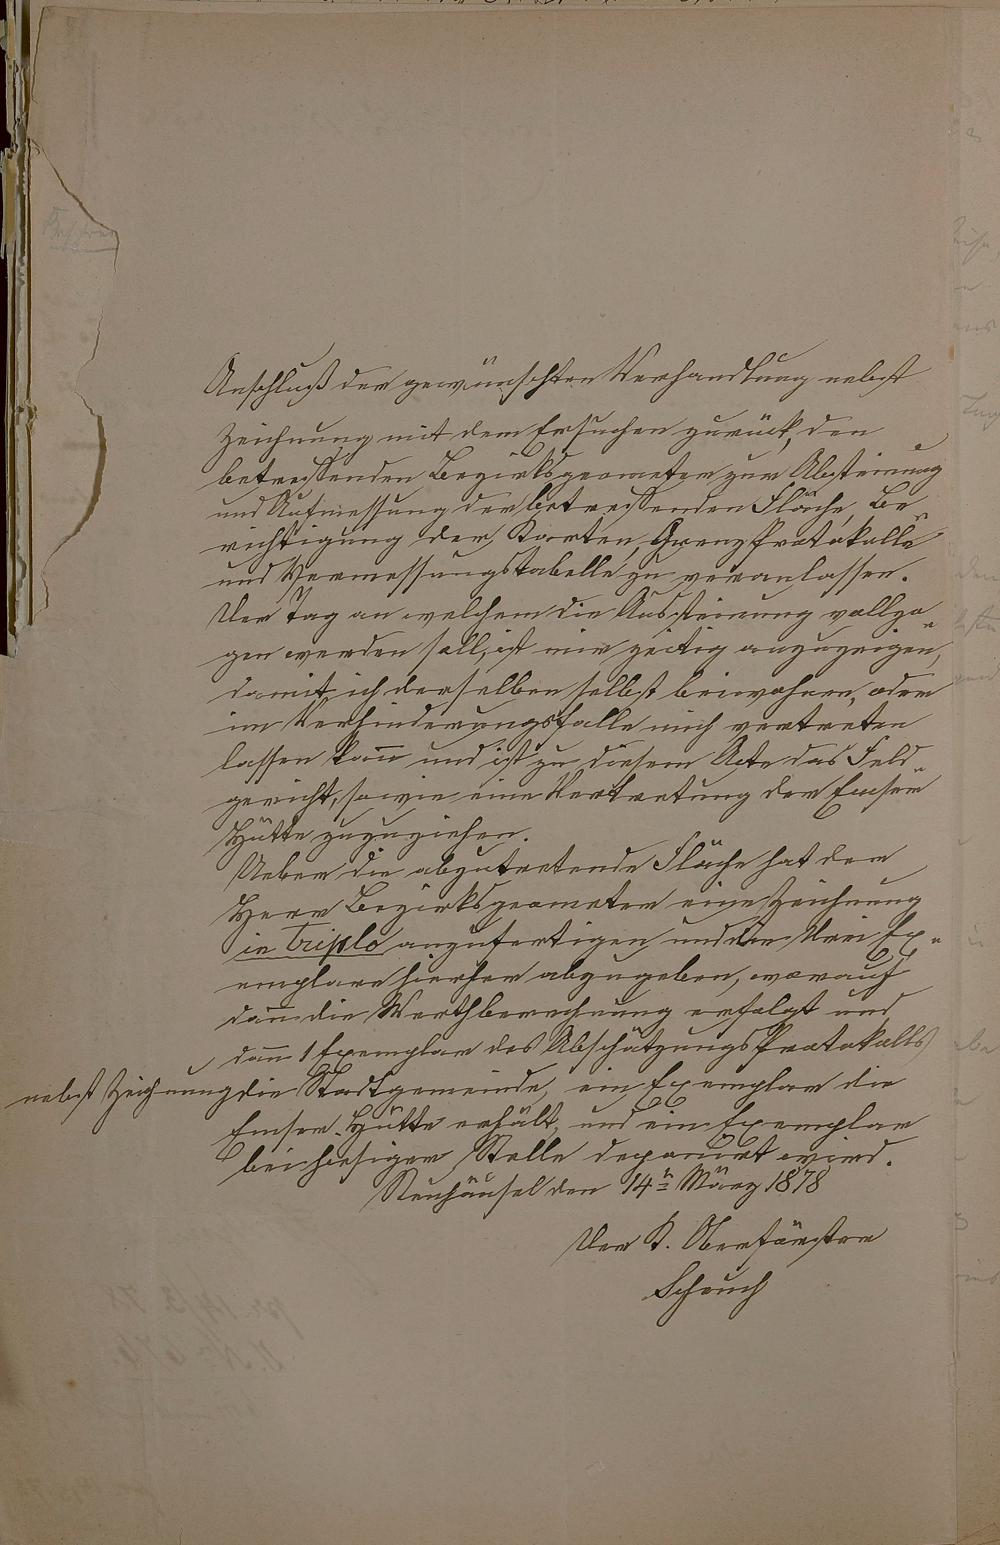 Anschluß der gewünschten Verhandlung nebst
Zeichnung mit dem Ersuchen zurück, den
betreffenden Bezirksgeometer zur Absteinung
und Aufmessung der betreffenden Fläche, Be-
richtigung der Karten, Grenz Protokolle
und Vermessungstabelle zu veranlassen.
Der Tag an welchem die Aussteinung vollzo-
gen werden soll, ist mir zeitig anzuzeigen,
damit ich derselben selbst beiwohnen, oder
im Verhinderungsfalle mich vertreten
lassen kann und ist zu diesem Acte das Feld-
gericht, sowie eine Vertretung der Emser
Hütte zuzuziehen.
Ueber die abzutretende Fläche hat der
Herr Bezirksgeometer eine Zeichnung
in triplo anzufertigen und die drei Ex-
emplare hierher abzugeben, worauf
dann die Werthberechnung erfolgt und
dann 1 Exemplar des Abschätzungs Protokolls
nebst Zeichnung die Stadtgemeinde, ein Exemplar die
Emser-Hütte erhält, und ein Exemplar
bei hiesiger Stelle deponirt wird.
Neuhäusel den 14ten März 1878
Der K. Oberförster
Schauch